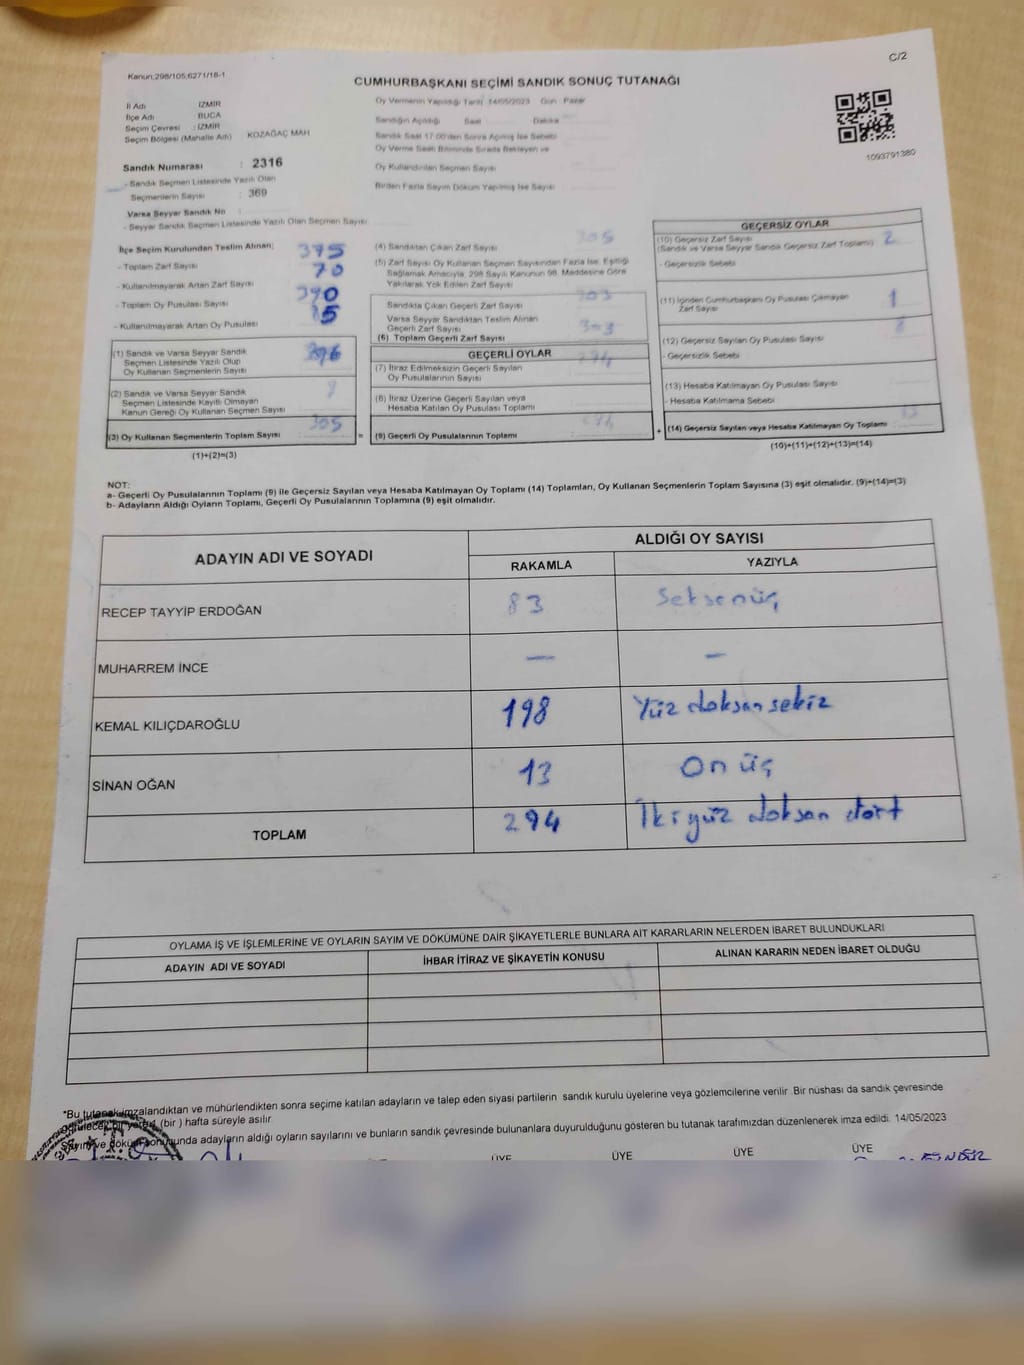 C/2
Kanun:298/105;6271/18-1
CUMHURBAŞKANI SEÇİMİ SANDIK SONUÇ TUTANAĞI
İl Adı : İZMİR
İlçe Adı : BUCA
Seçim Çevresi : İZMİR
Seçim Bölgesi (Mahalle Adı) : KOZAĞAÇ MAH
Sandık Numarası : 2316
- Sandık Seçmen Listesinde Yazılı Olan
Seçmenlerin Sayısı : 369
Varsa Seyyar Sandık No :
- Seyyar Sandık Seçmen Listesinde Yazılı Olan Seçmen Sayısı
Oy Vermenin Yapıldığı Tarih 14/05/2023 Gün : Pazar
Sandığın Açıldığı Saat Dakika
Sandık Saat 17.00'den Sonra Açılmış İse Sebebi
Oy Verme Saati Bitiminde Sırada Bekleyen ve
Oy Kullandırılan Seçmen Sayısı
Birden Fazla Sayım Döküm Yapılmış İse Sayısı
1093791380
İlçe Seçim Kurulundan Teslim Alınan;
- Toplam Zarf Sayısı 375
- Kullanılmayarak Artan Zarf Sayısı 70
- Toplam Oy Pusulası Sayısı
- Kullanılmayarak Artan Oy Pusulası
(1) Sandık ve Varsa Seyyar Sandık
Seçmen Listesinde Yazılı Olup
Oy Kullanan Seçmenlerin Sayısı
(2) Sandık ve Varsa Seyyar Sandık
Seçmen Listesinde Kayıtlı Olmayan
Kanun Gereği Oy Kullanan Seçmen Sayısı
(3) Oy Kullanan Seçmenlerin Toplam Sayısı : 305
(1)+(2)=(3)
(4) Sandıktan Çıkan Zarf Sayısı 305
(5) Zarf Sayısı Oy Kullanan Seçmen Sayısından Fazla İse, Eşitliği
Sağlamak Amacıyla, 298 Sayılı Kanunun 98. Maddesine Göre
Yakılarak Yok Edilen Zarf Sayısı
Sandıkta Çıkan Geçerli Zarf Sayısı 303
Varsa Seyyar Sandıktan Teslim Alınan
Geçerli Zarf Sayısı
(6) Toplam Geçerli Zarf Sayısı 303
GEÇERLİ OYLAR
(7) İtiraz Edilmeksizin Geçerli Sayılan
Oy Pusulalarının Sayısı 294
(8) İtiraz Üzerine Geçerli Sayılan veya
Hesaba Katılan Oy Pusulası Toplamı
= (9) Geçerli Oy Pusulalarının Toplamı : 294
GEÇERSİZ OYLAR
(10) Geçersiz Zarf Sayısı 2
(Sandık ve Varsa Seyyar Sandık Geçersiz Zarf Toplamı)
- Geçersizlik Sebebi
(11) İçinden Cumhurbaşkanı Oy Pusulası Çıkmayan
Zarf Sayısı 1
(12) Geçersiz Sayılan Oy Pusulası Sayısı 8
- Geçersizlik Sebebi
(13) Hesaba Katılmayan Oy Pusulası Sayısı
- Hesaba Katılmama Sebebi
+ (14) Geçersiz Sayılan veya Hesaba Katılmayan Oy Toplamı
(10)+(11)+(12)+(13)=(14)
NOT:
a- Geçerli Oy Pusulalarının Toplamı (9) ile Geçersiz Sayılan veya Hesaba Katılmayan Oy Toplamı (14) Toplamları, Oy Kullanan Seçmenlerin Toplam Sayısına (3) eşit olmalıdır. (9)+(14)=(3)
b- Adayların Aldığı Oyların Toplamı, Geçerli Oy Pusulalarının Toplamına (9) eşit olmalıdır.
ADAYIN ADI VE SOYADI
ALDIĞI OY SAYISI
RAKAMLA YAZIYLA
RECEP TAYYİP ERDOĞAN 83 Seksenüç
MUHARREM İNCE — —
KEMAL KILIÇDAROĞLU 198 Yüz doksan sekiz
SİNAN OĞAN 13 On üç
TOPLAM 294 İki yüz doksan dört
OYLAMA İŞ VE İŞLEMLERİNE VE OYLARIN SAYIM VE DÖKÜMÜNE DAİR ŞİKAYETLERLE BUNLARA AİT KARARLARIN NELERDEN İBARET BULUNDUKLARI
ADAYIN ADI VE SOYADI İHBAR İTİRAZ VE ŞİKAYETİN KONUSU ALINAN KARARIN NEDEN İBARET OLDUĞU
*Bu tutanak imzalandıktan ve mühürlendikten sonra seçime katılan adayların ve talep eden siyasi partilerin sandık kurulu üyelerine veya gözlemcilerine verilir. Bir nüshası da sandık çevresinde
(bir) hafta süreyle asılır.
Sayım ve döküm sonunda adayların aldığı oyların sayılarını ve bunların sandık çevresinde bulunanlara duyurulduğunu gösteren bu tutanak tarafımızdan düzenlenerek imza edildi. 14/05/2023
ÜYE ÜYE ÜYE ÜYE